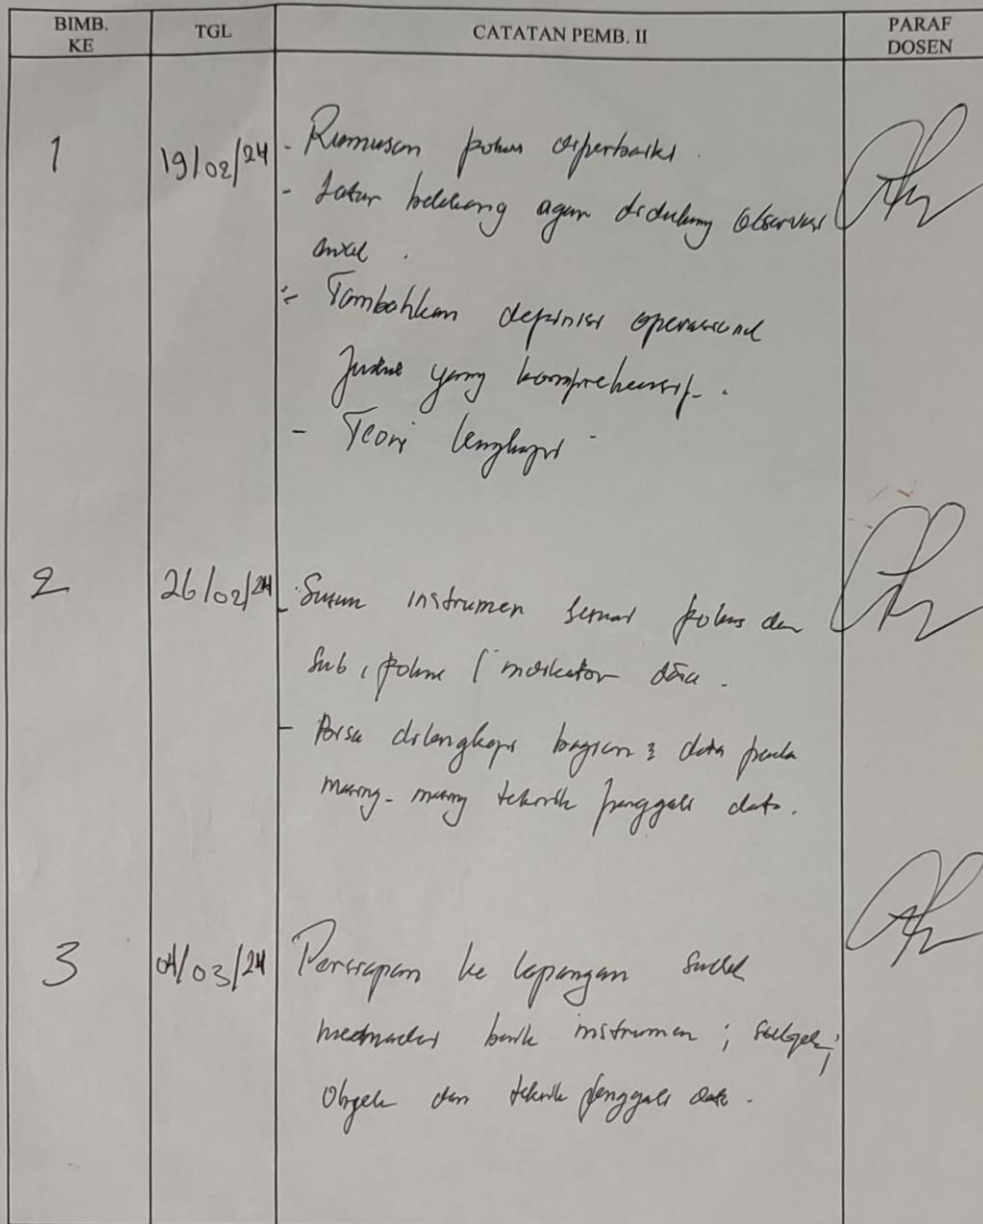 BIMB. KE
TGL
CATATAN PEMB. II
PARAF DOSEN
1
19/02/24
- Rumusan pokus diperbaiki.
- Latar belakang agar didukung observasi
awal.
- Tambahkan depinisi operasional
Judul yang komprehensif.
- Teori lengkapi
2
26/02/24
- Susun instrumen sesuai pokus dan
sub pokus / indikator
- dilengkapi bagian2 data pada
masing-masing teknik penggali data.
3
04/03/24
Persiapan ke lapangan sudah
memadai baik instrumen; subyek;
Obyek dan teknik penggali data.